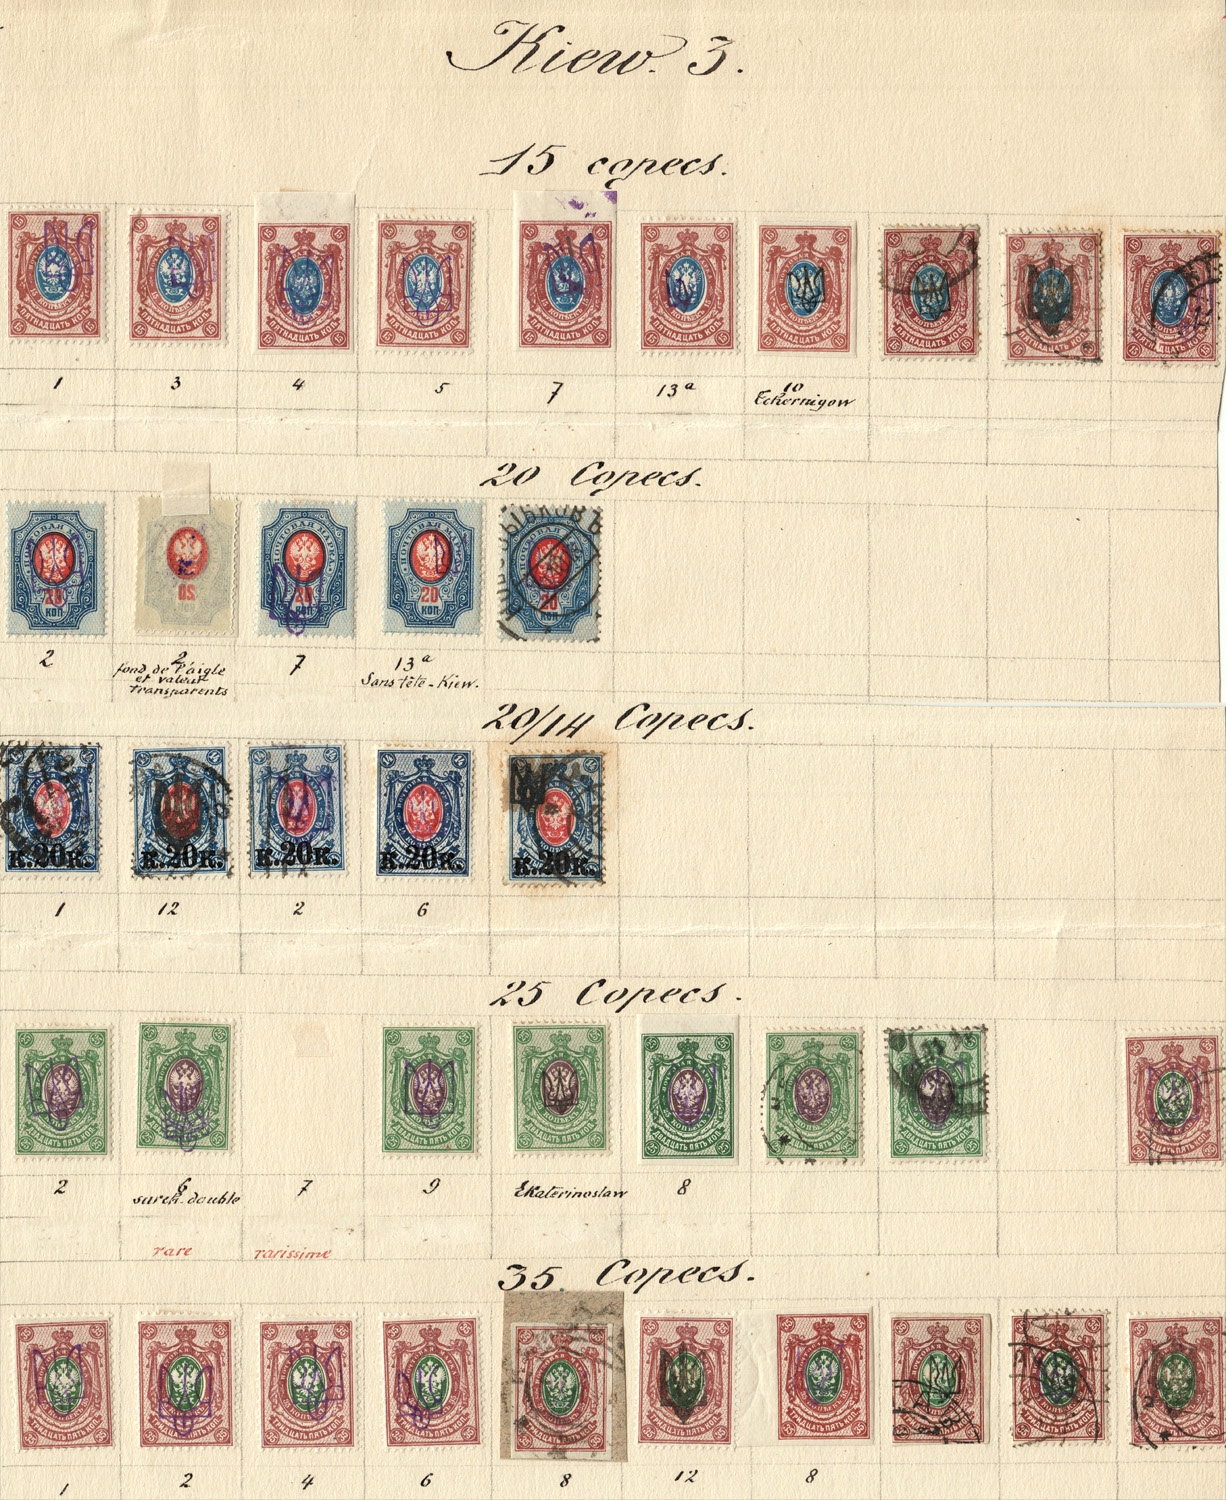 Kiew. 3.
15 copecs.
1 3 4 5 7 13a 10
Eckernigow
20 Copecs.
2 2 7 13a
fond de l'aigle
et valeur
transparents
Sans tête - Kiew.
20/14 Copecs.
к.20к. к.20к. к.20к. к.20к. к.20к.
1 12 2 6
25 Copecs.
2 6 7 9 Ekaterinoslaw 8
surch. double
rare rarissime
35 Copecs.
1 2 4 6 8 12 8